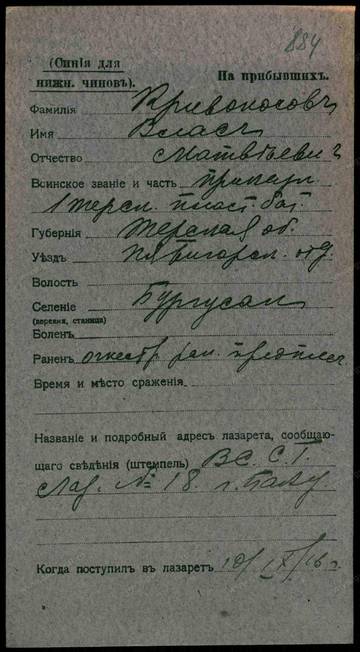 884
(Синія для
нижн. чиновъ).
На прибывшихъ.
Фамилія Кривоносовъ
Имя Власъ
Отчество Матвѣевич
Воинское званіе и часть приказн.
1 терск. пласт. бат.
Губернія Терская об.
Уѣздъ Пятигорск. отд.
Волость
Селеніе Бургусан
(деревня, станица)
Боленъ
Раненъ огнестр. ран. предплеч.
Время и мѣсто сраженія
Названіе и подробный адресъ лазарета, сообщаю-
щаго свѣдѣнія (штемпель) В. С. Г.
Лаз. № 18. г. Баку
Когда поступилъ въ лазаретъ 10/IX/16 г.